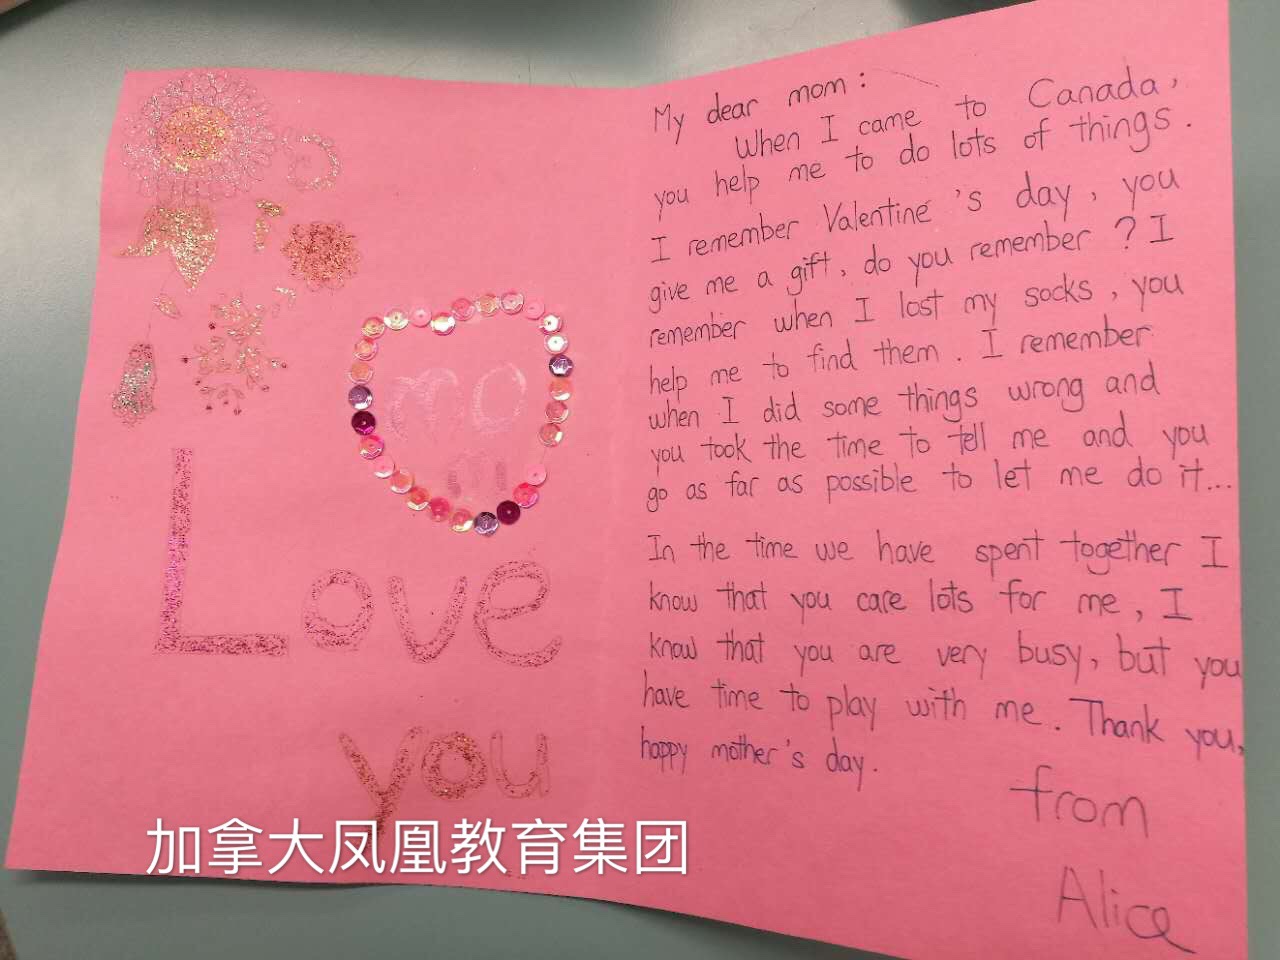 mo
m
Love
you
My dear mom:
When I came to Canada,
you help me to do lots of things.
I remember Valentine's day, you
give me a gift, do you remember? I
remember when I lost my socks, you
help me to find them. I remember
when I did some things wrong and
you took the time to tell me and you
go as far as possible to let me do it...
In the time we have spent together I
know that you care lots for me, I
know that you are very busy, but you
have time to play with me. Thank you,
happy mother's day.
from
Alice
加拿大凤凰教育集团